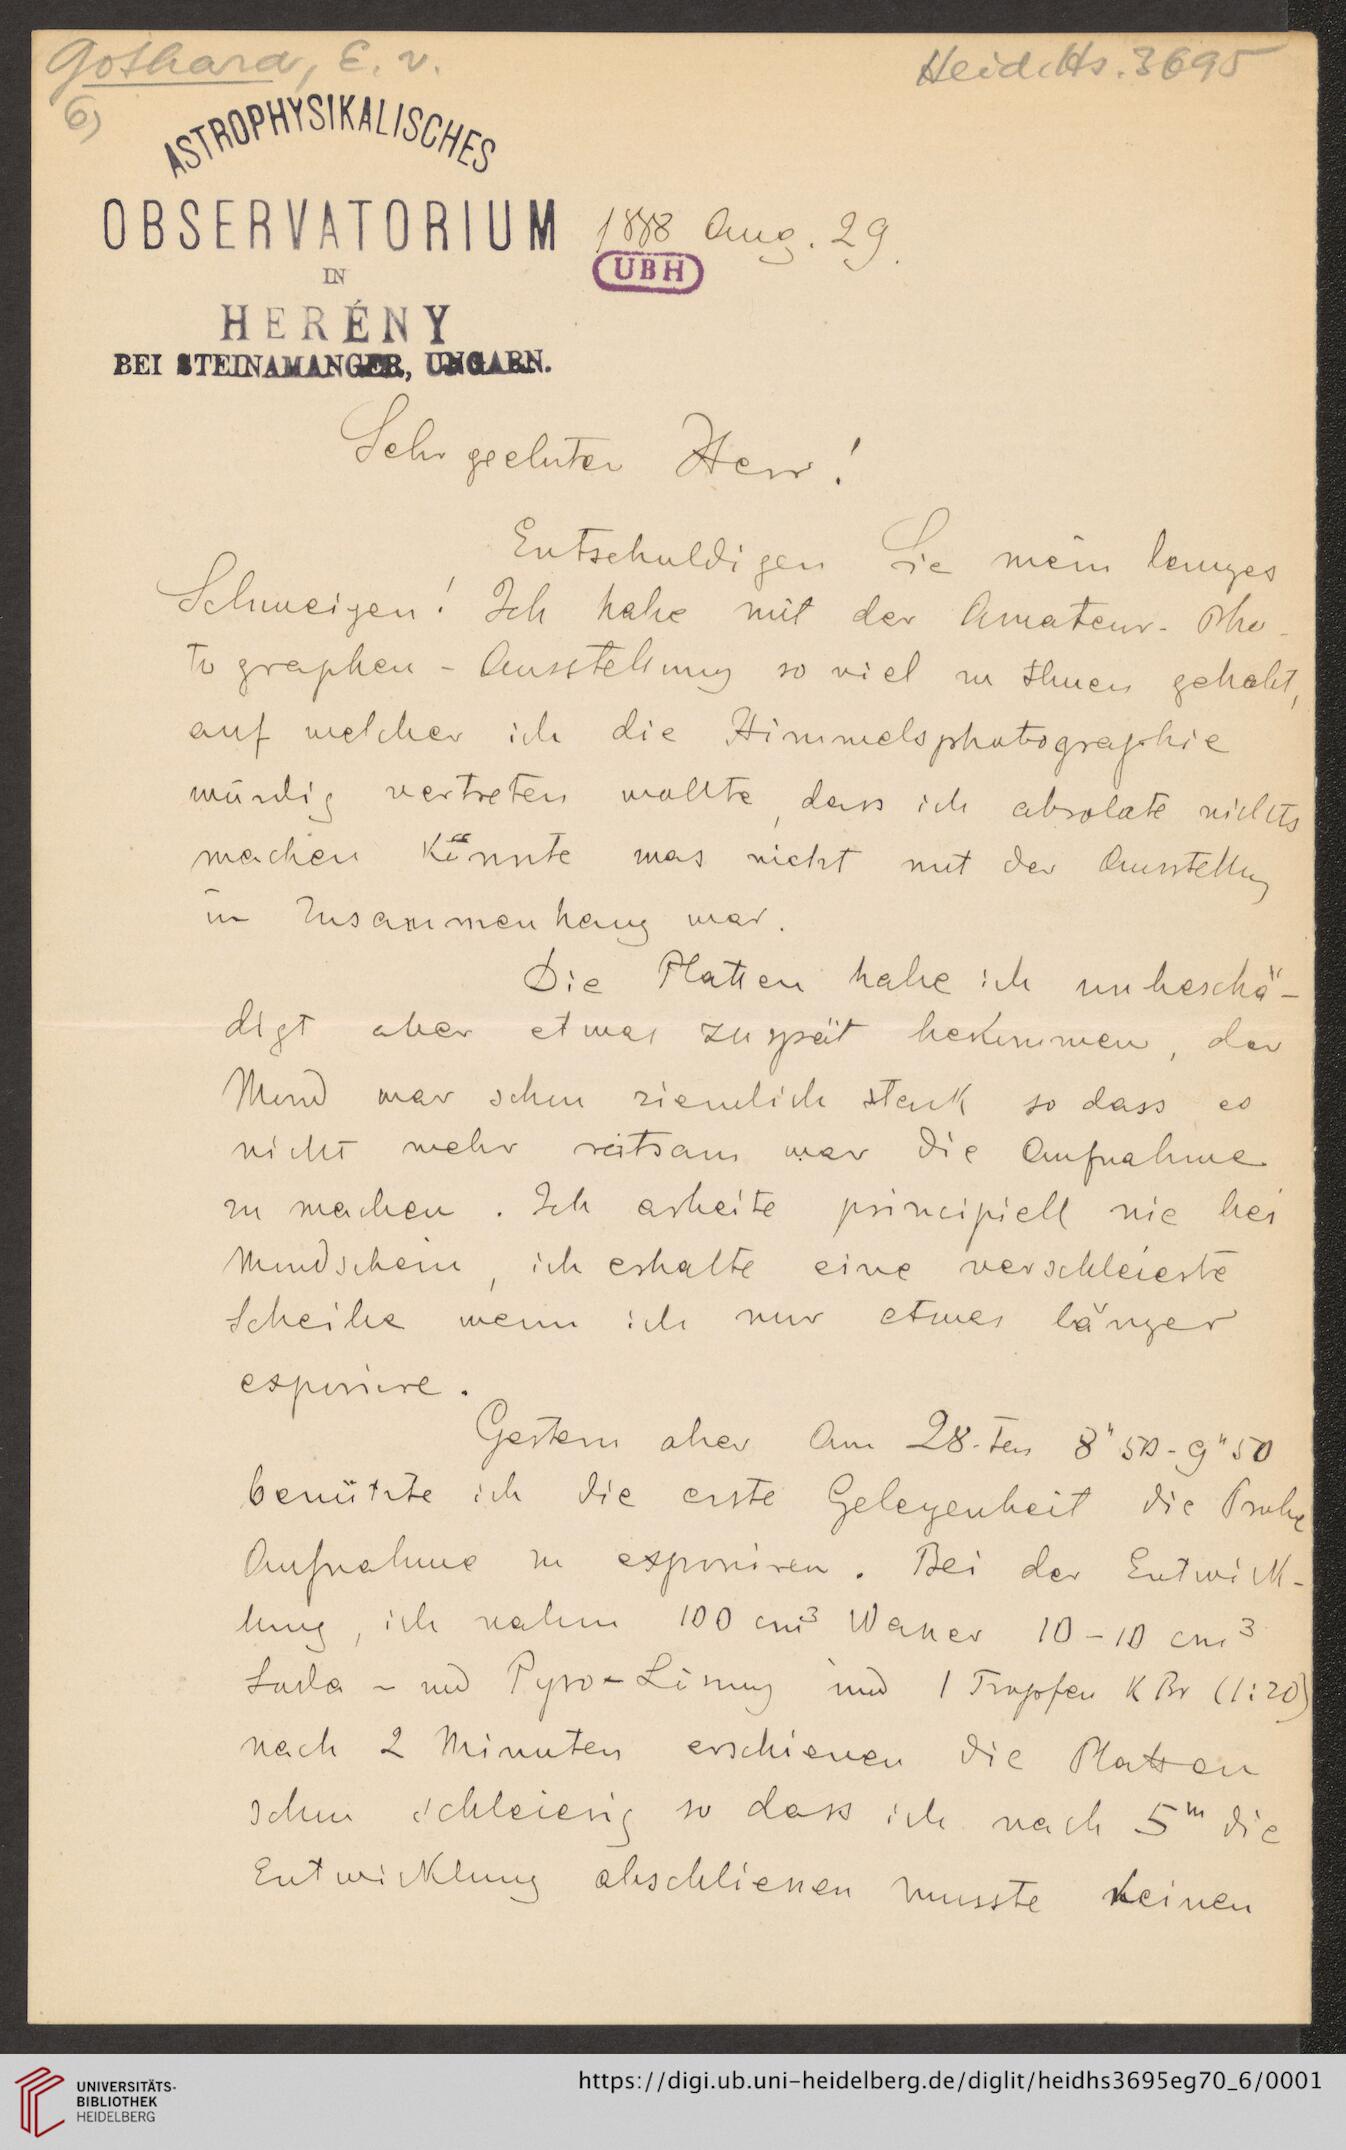 Gothard, E. v.
Heid. Hs. 3695
6)
ASTROPHYSIKALISCHES
OBSERVATORIUM
IN
HERÉNY
BEI STEINAMANGER, UNGARN.
1888 Aug. 29.
UBH
Sehr geehrter Herr!
Entschuldigen Sie mein langes
Schweigen! Ich habe mit der Amateur-Pho-
tographen-Ausstellung so viel zu thuen gehabt,
auf welcher ich die Himmelsphotographie
würdig vertreten wollte, dass ich absolute nichts
machen könnte was nicht mit der Ausstellung
in Zusammenhang war.
Die Platten habe ich unbeschä-
digt aber etwas zu spät bekommen, der
Mond war schon ziemlich stark so dass es
nicht mehr rätsam war die Aufnahme
zu machen. Ich arbeite principiell nie bei
Mondschein, ich erhalte eine verschleierte
Scheibe wenn ich nur etwas länger
exponiere.
Gestern aber Am 28-ten 8h50-9h50
benützte ich die erste Gelegenheit die Probe
Aufnahme zu exponiren. Bei der Entwick-
lung, ich nahm 100 cm³ Wasser 10-10 cm³
Soda - und Pyro-Lösung und 1 Tropfen KBr (1:20)
nach 2 Minuten erschienen die Platten
schon schleierig so dass ich nach 5m die
Entwicklung abschliessen musste keinen
UNIVERSITÄTS-
BIBLIOTHEK
HEIDELBERG
https://digi.ub.uni-heidelberg.de/diglit/heidhs3695eg70_6/0001